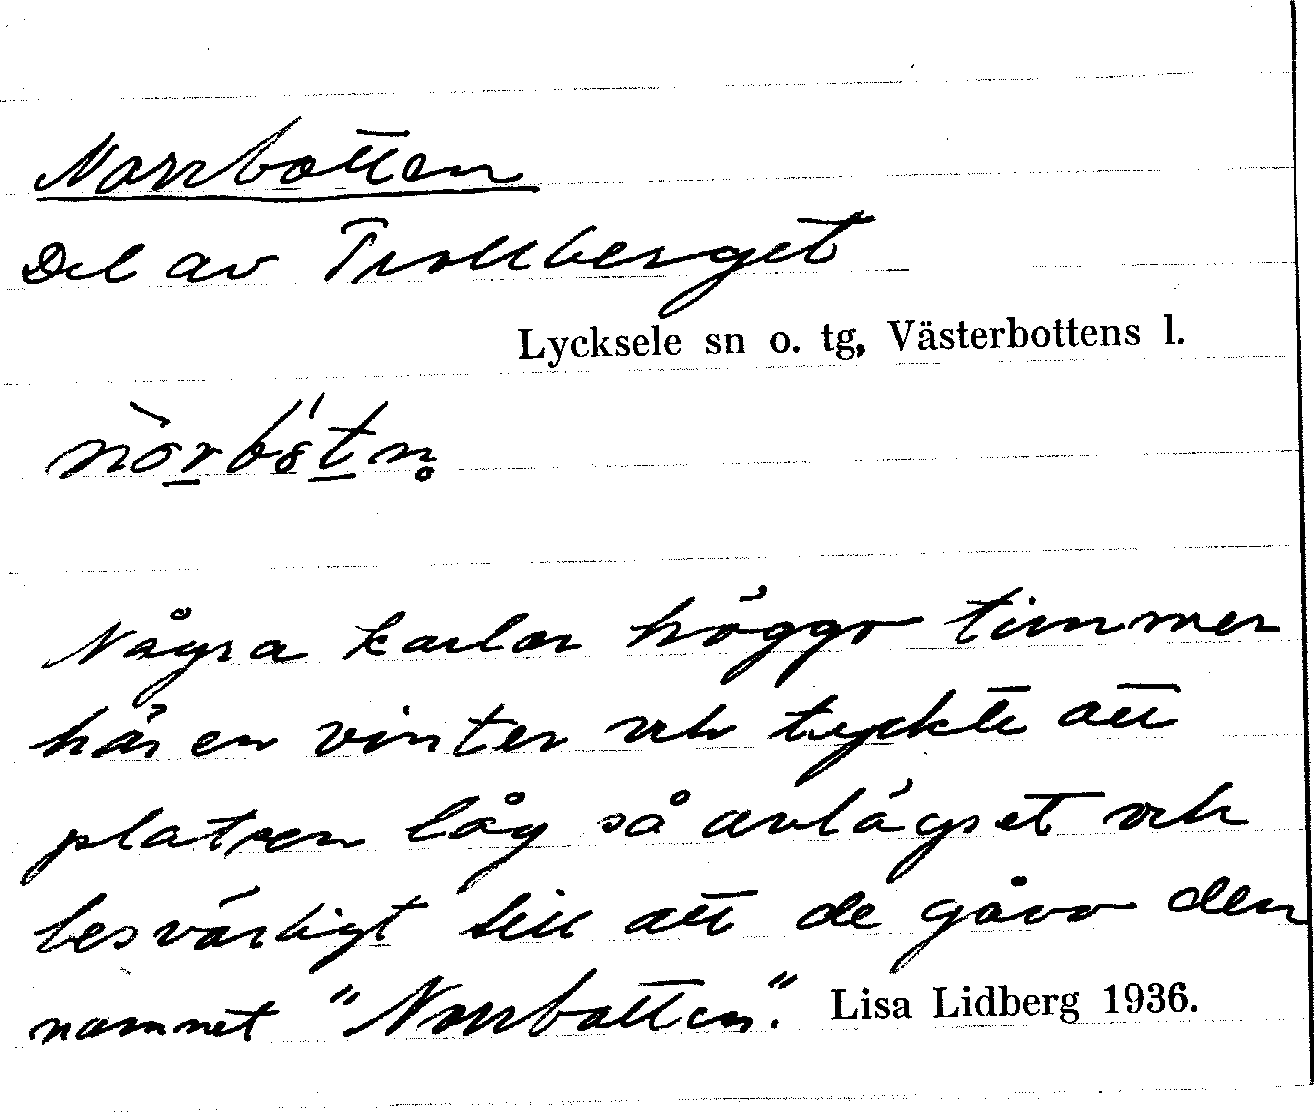 Norrbotten
Del av Trollberget
Lycksele sn o. tg, Västerbottens l.
Några karlar höggo timmer
här en vinter och tyckte att
platsen låg så avlägset och
besvärligt till att de gåvo den
namnet "Norrbotten".
Lisa Lidberg 1936.